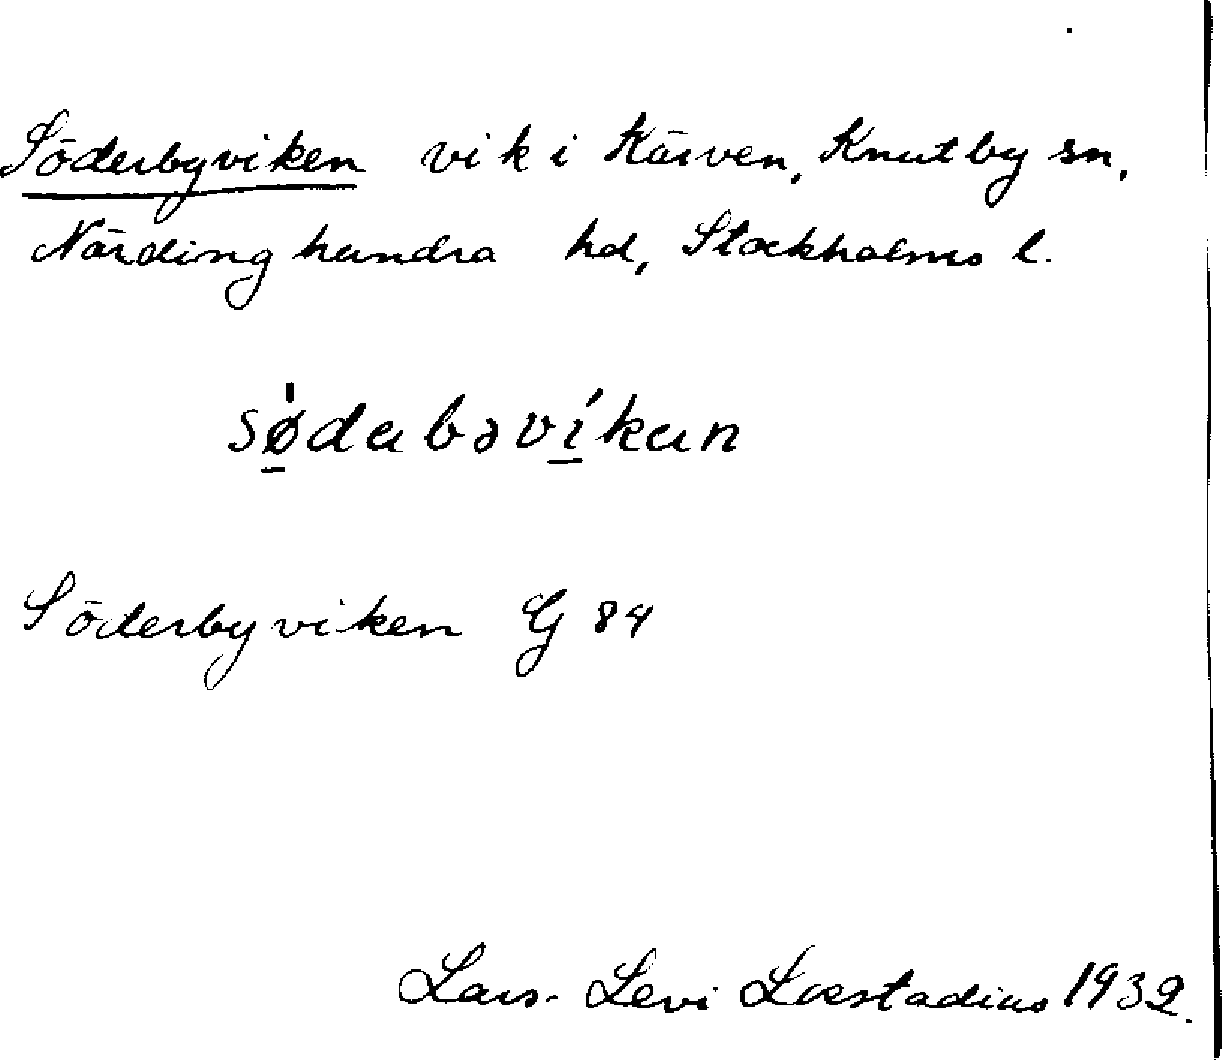 Söderbyviken vik i Kärven, Knutby sn,
Närdinghundra hd, Stockholms l.
sø̱̍dabəví̱kan
Söderbyviken G 84
Lars-Levi Læstadius 1932.